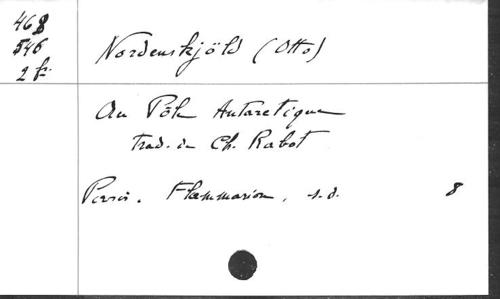 468
546
2 fr.
Nordenskjöld (Otto)
Au Pôle Antarctique
Trad. de Ch. Rabot
Paris. Flammarion, s.d. 8